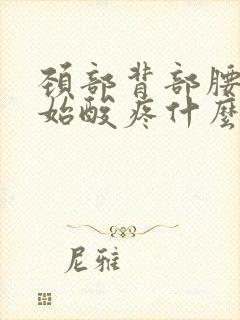 頚部背部腰
始酸疼什麼
尼雅